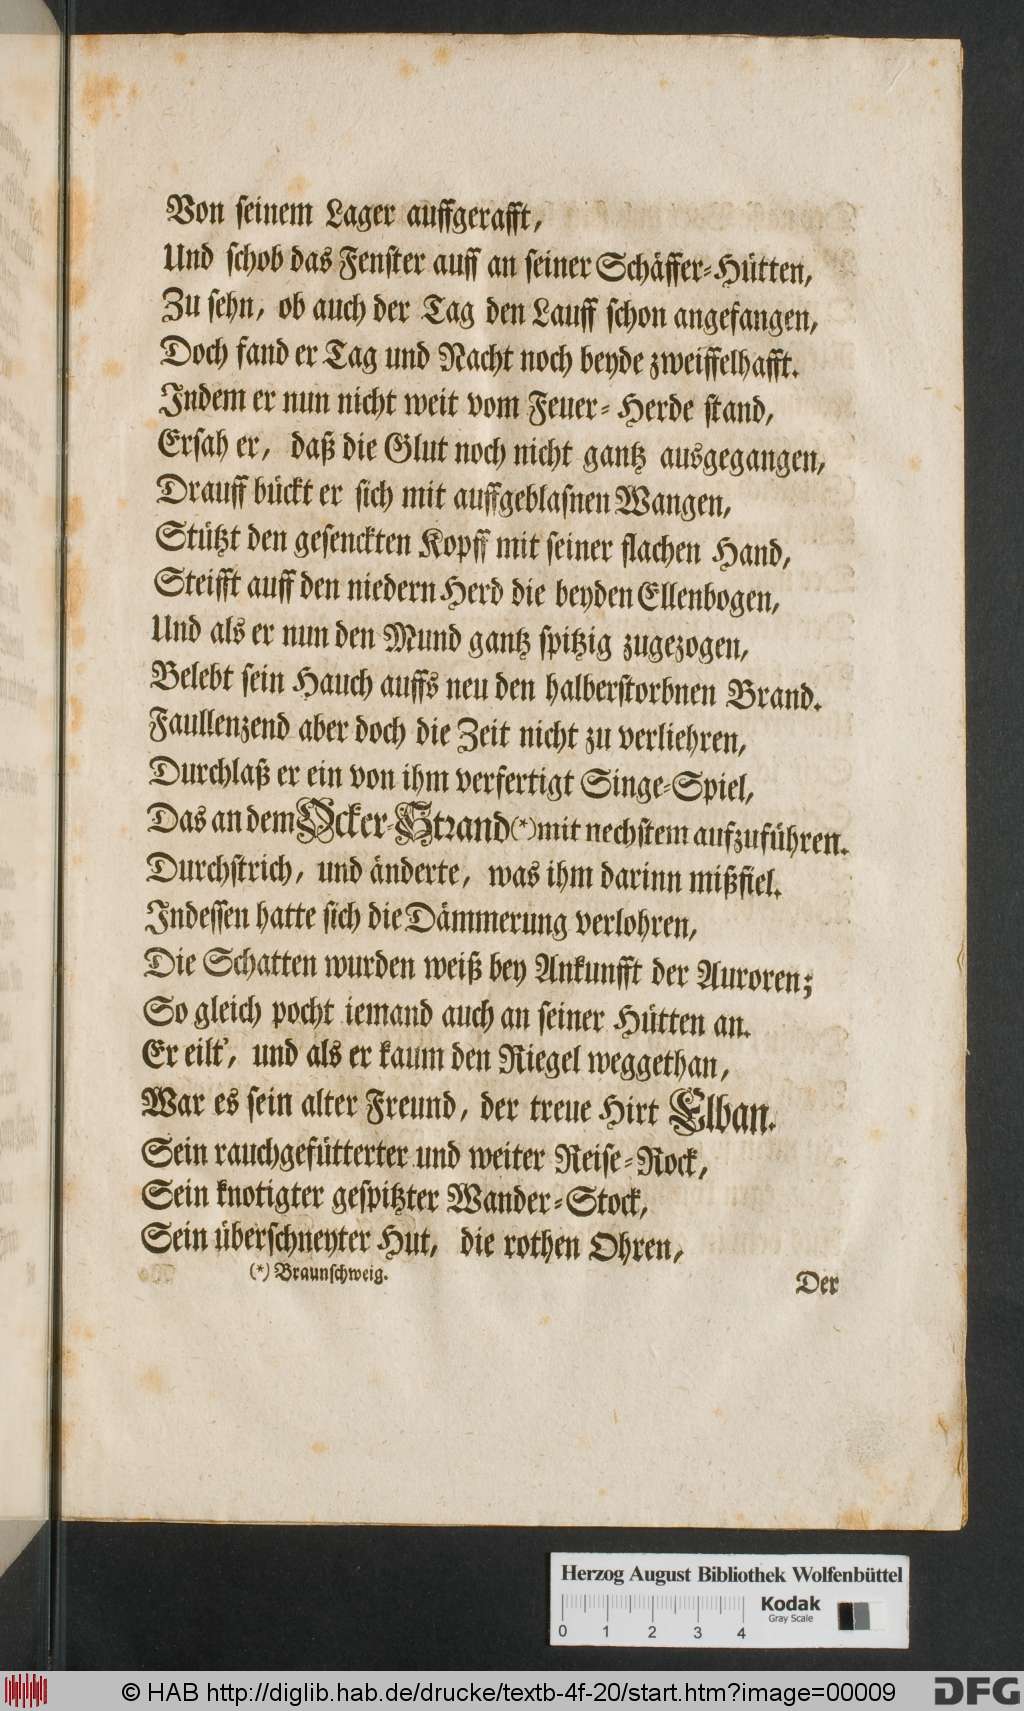 Von seinem Lager auffgerafft,
Und schob das Fenster auff an seiner Schäffer-Hütten,
Zu sehn, ob auch der Tag den Lauff schon angefangen,
Doch fand er Tag und Nacht noch beyde zweiffelhafft.
Indem er nun nicht weit vom Feuer-Herde stand,
Ersah er, daß die Glut noch nicht gantz ausgegangen,
Drauff bückt er sich mit auffgeblasnen Wangen,
Stützt den gesenckten Kopff mit seiner flachen Hand,
Steifft auff den niedern Herd die beyden Ellenbogen,
Und als er nun den Mund gantz spitzig zugezogen,
Belebt sein Hauch auffs neu den halberstorbnen Brand.
Faullenzend aber doch die Zeit nicht zu verliehren,
Durchlaß er ein von ihm verfertigt Singe-Spiel,
Das an dem Ocker-Strand (*) mit nechstem aufzuführen.
Durchstrich, und änderte, was ihm darinn mißfiel.
Indessen hatte sich die Dämmerung verlohren,
Die Schatten wurden weiß bey Ankunfft der Auroren;
So gleich pocht iemand auch an seiner Hütten an.
Er eilt', und als er kaum den Riegel weggethan,
War es sein alter Freund, der treue Hirt Elban.
Sein rauchgefütterter und weiter Reise-Rock,
Sein knotigter gespitzter Wander-Stock,
Sein überschneyter Hut, die rothen Ohren,
(*) Braunschweig.
Der
Herzog August Bibliothek Wolfenbüttel
Kodak
Gray Scale
0 1 2 3 4
© HAB http://diglib.hab.de/drucke/textb-4f-20/start.htm?image=00009
DFG